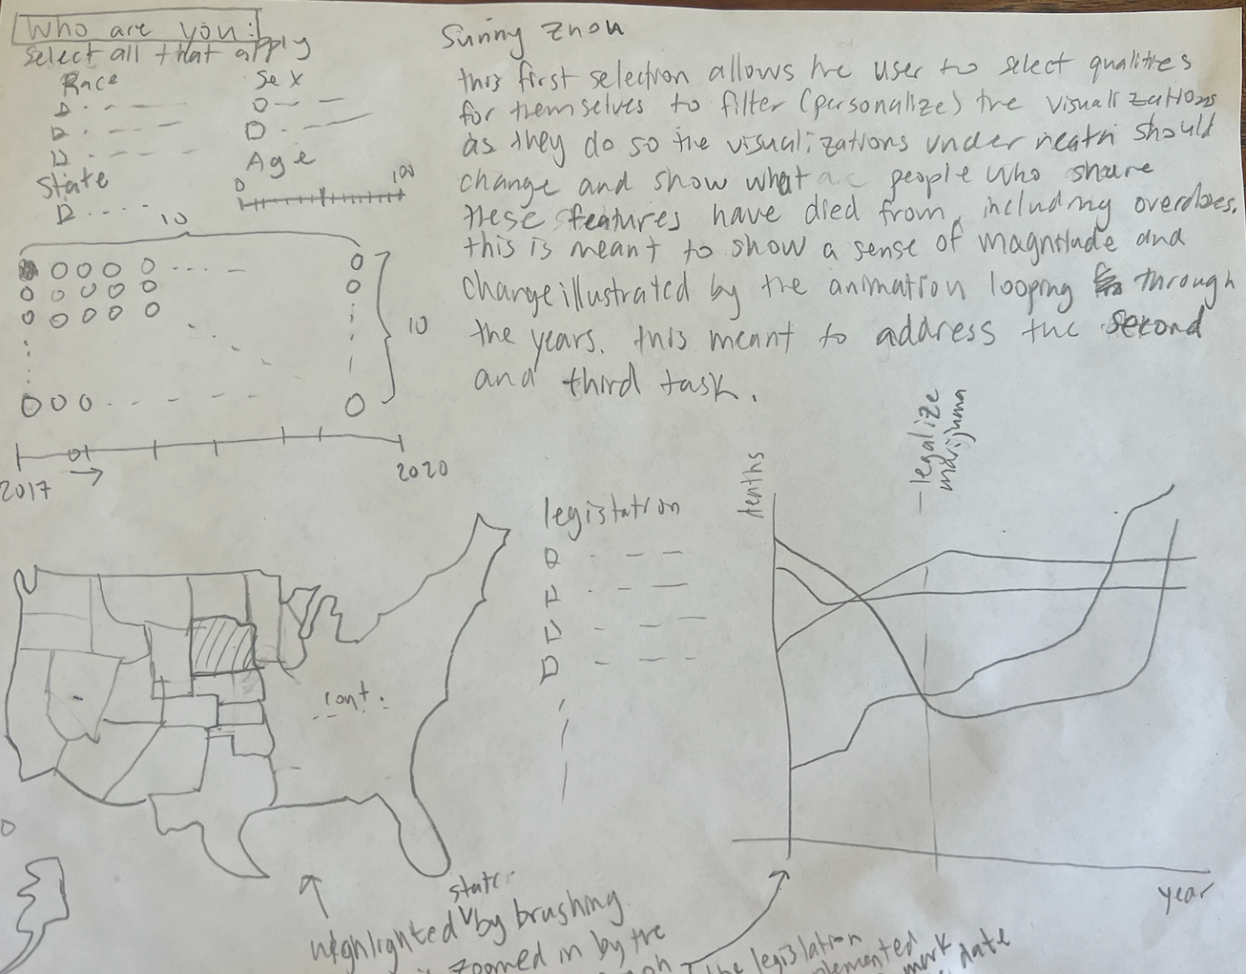 Who are you:
Select all that apply
Race
Sex
Age
0 100
State
10
10
2017
2020
Sunny Zhou
this first selection allows the user to select qualities
for themselves to filter (personalize) the visualizations
as they do so the visualizations underneath should
change and show what people who share
these features have died from, including overdoses.
this is meant to show a sense of magnitude and
change illustrated by the animation looping through
the years. this meant to address the second
and third task.
legislation
cont.
deaths
legalize
marijuana
year
state
highlighted by brushing
zoomed in by the
the legislation
mark date